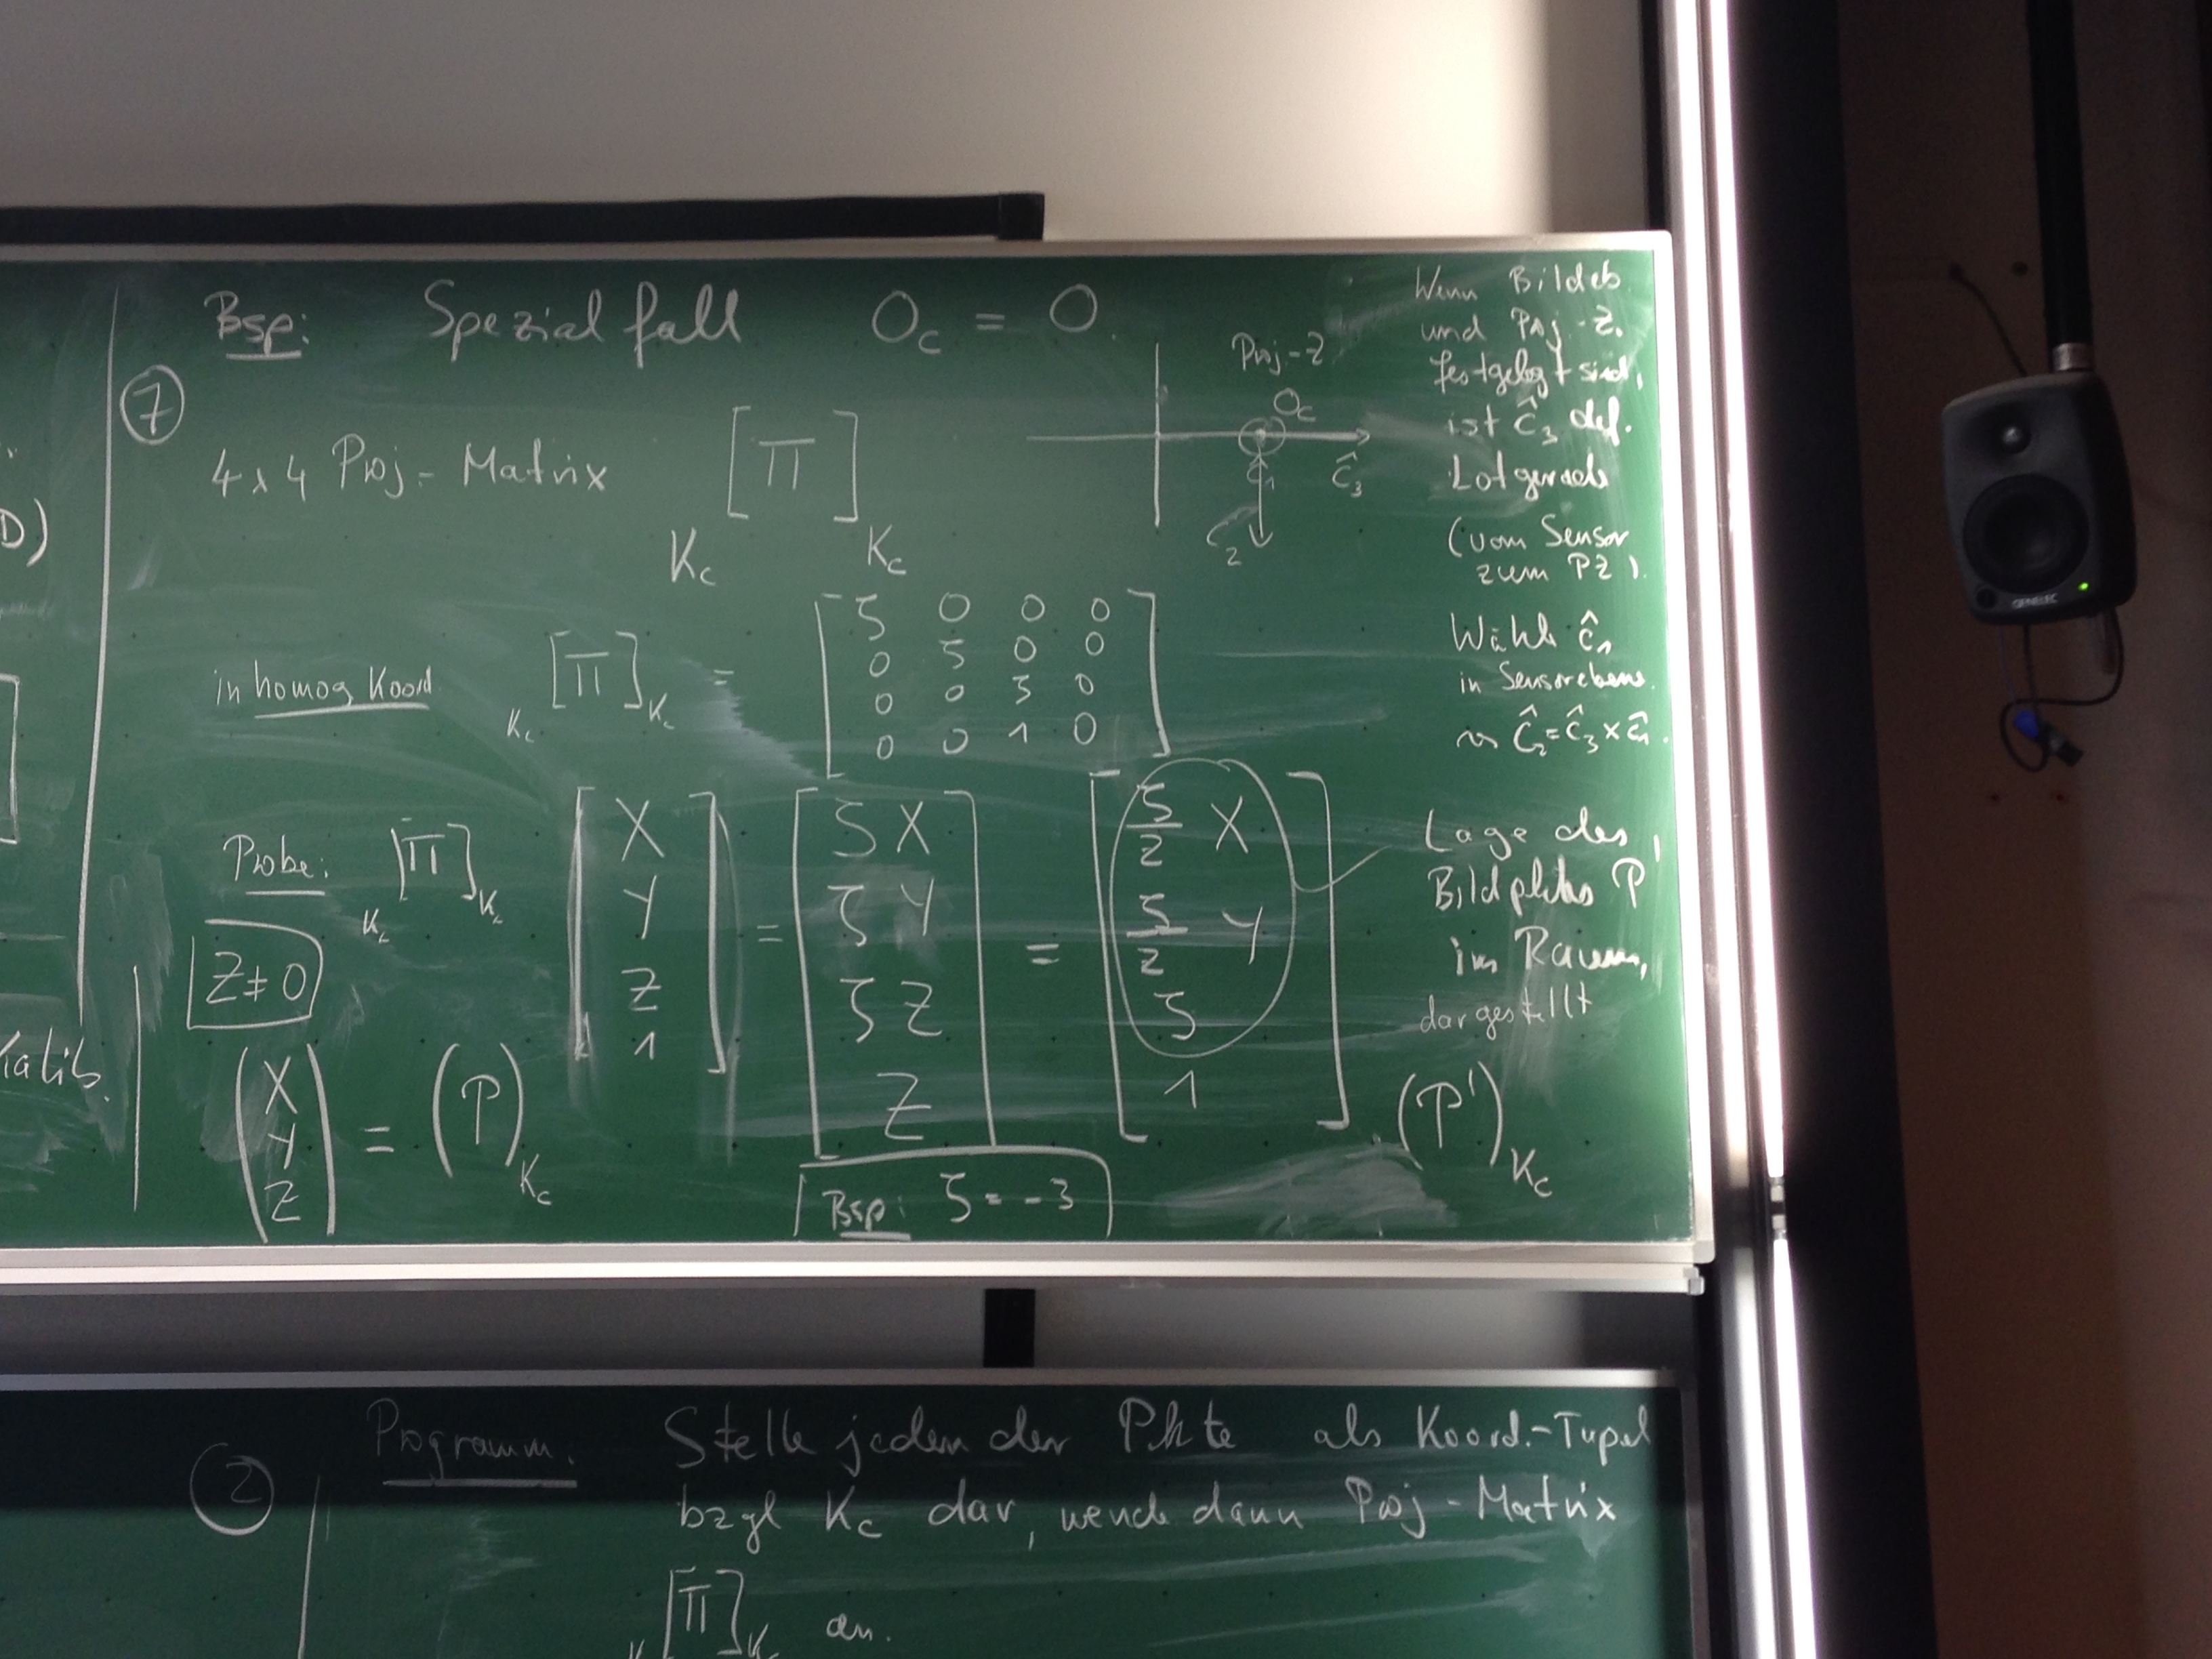 D)
Kalib.
Bsp: Spezialfall O_c = O.
⑦
4x4 Proj-Matrix [Π]
K_c K_c
in homog Koord. K_c [Π] K_c =
ζ 0 0 0
0 ζ 0 0
0 0 ζ 0
0 0 1 0
Probe: K_c [Π] K_c
X
Y
Z
1
=
ζX
ζY
ζZ
Z
=
ζ/Z X
ζ/Z Y
ζ
1
Z ≠ 0
X
Y
Z
= (P) K_c
Bsp: ζ = -3
Proj-Z
O_c
ĉ_1
ĉ_3
ĉ_2
Wenn Bildeb.
und Proj-Z.
festgelegt sind,
ist ĉ_3 def.
Lotgerade
(vom Sensor
zum PZ).
Wähle ĉ_1
in Sensorebene.
⇝ ĉ_2 = ĉ_3 × ĉ_1.
Lage des
Bildpktes P'
im Raum,
dargestellt
(P') K_c
GENELEC
②
Programm. Stelle jeden der Pkte als Koord.-Tupel
bzgl K_c dar, wende dann Proj-Matrix
K [Π] K_c an.